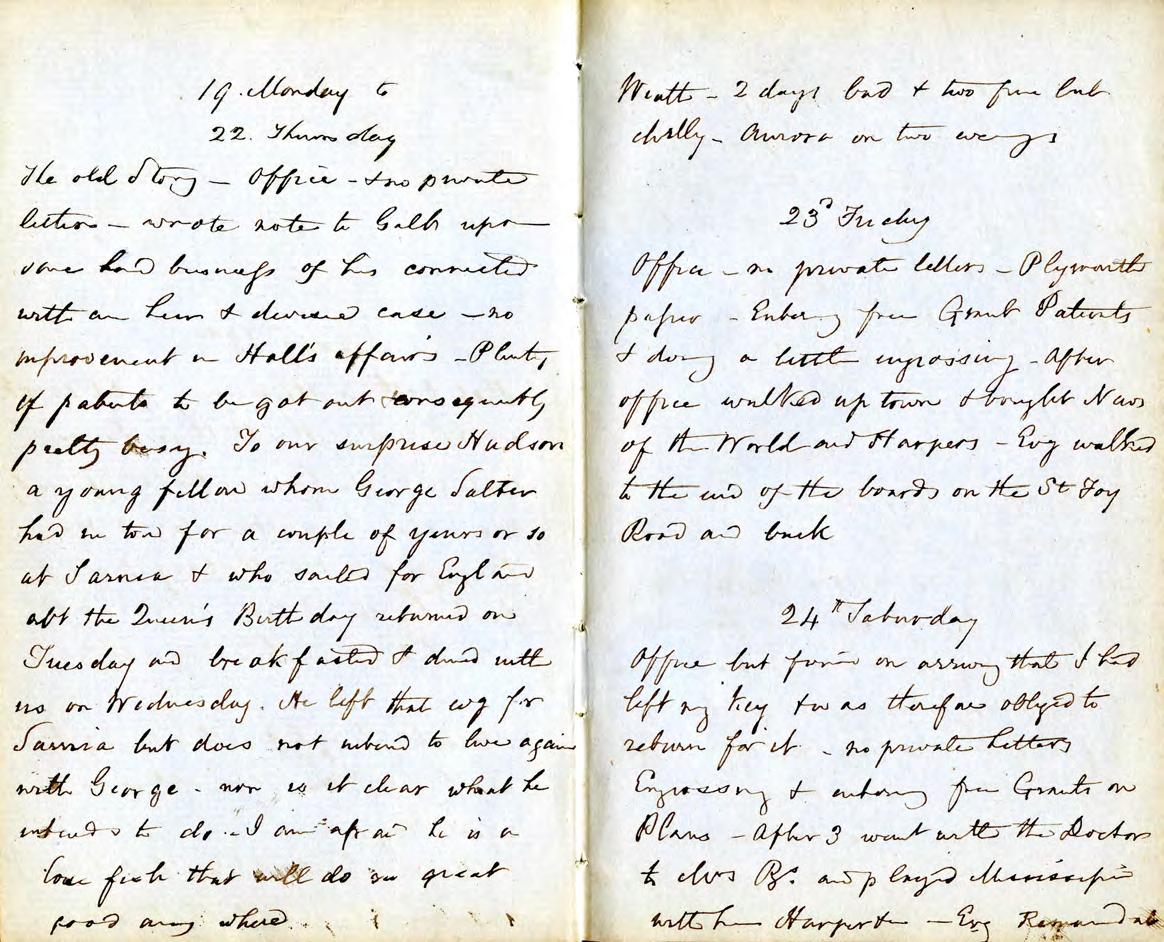 19. Monday to
22. Thursday
The old Story - Office - & no private
letters - wrote note to Galt upon
some land business of his connected
with an heir & devisee case - no
improvement in Hall's affairs - Plenty
of patents to be got out & consequently
pretty busy. To our surprise Hudson
a young fellow whom George Salter
had in tow for a couple of years or so
at Sarnia & who sailed for England
abt the Queen's Birthday returned on
Tuesday and breakfasted & dined with
us on Wednesday. He left that evg for
Sarnia but does not intend to live again
with George - nor is it clear what he
intends to do - I am afraid he is a
loose fish that will do no great
good any where.
Weath - 2 days bad & two fine but
chilly - Aurora on two evengs
23d Friday
Office - no private letters - Plymouth
paper - Entering free Grant Patents
& doing a little engrossing - After
office walked up town & bought News
of the World and Harpers - Evg walked
to the end of the boards on the St Foy
Road and back
24th Saturday
Office but found on arriving that I had
left my key & was therefore obliged to
return for it - no private letters
Engrossing & entering free Grants on
Plans - After 3 went with the Doctor
to Mrs and played Mississippi
with - Evg Remained at